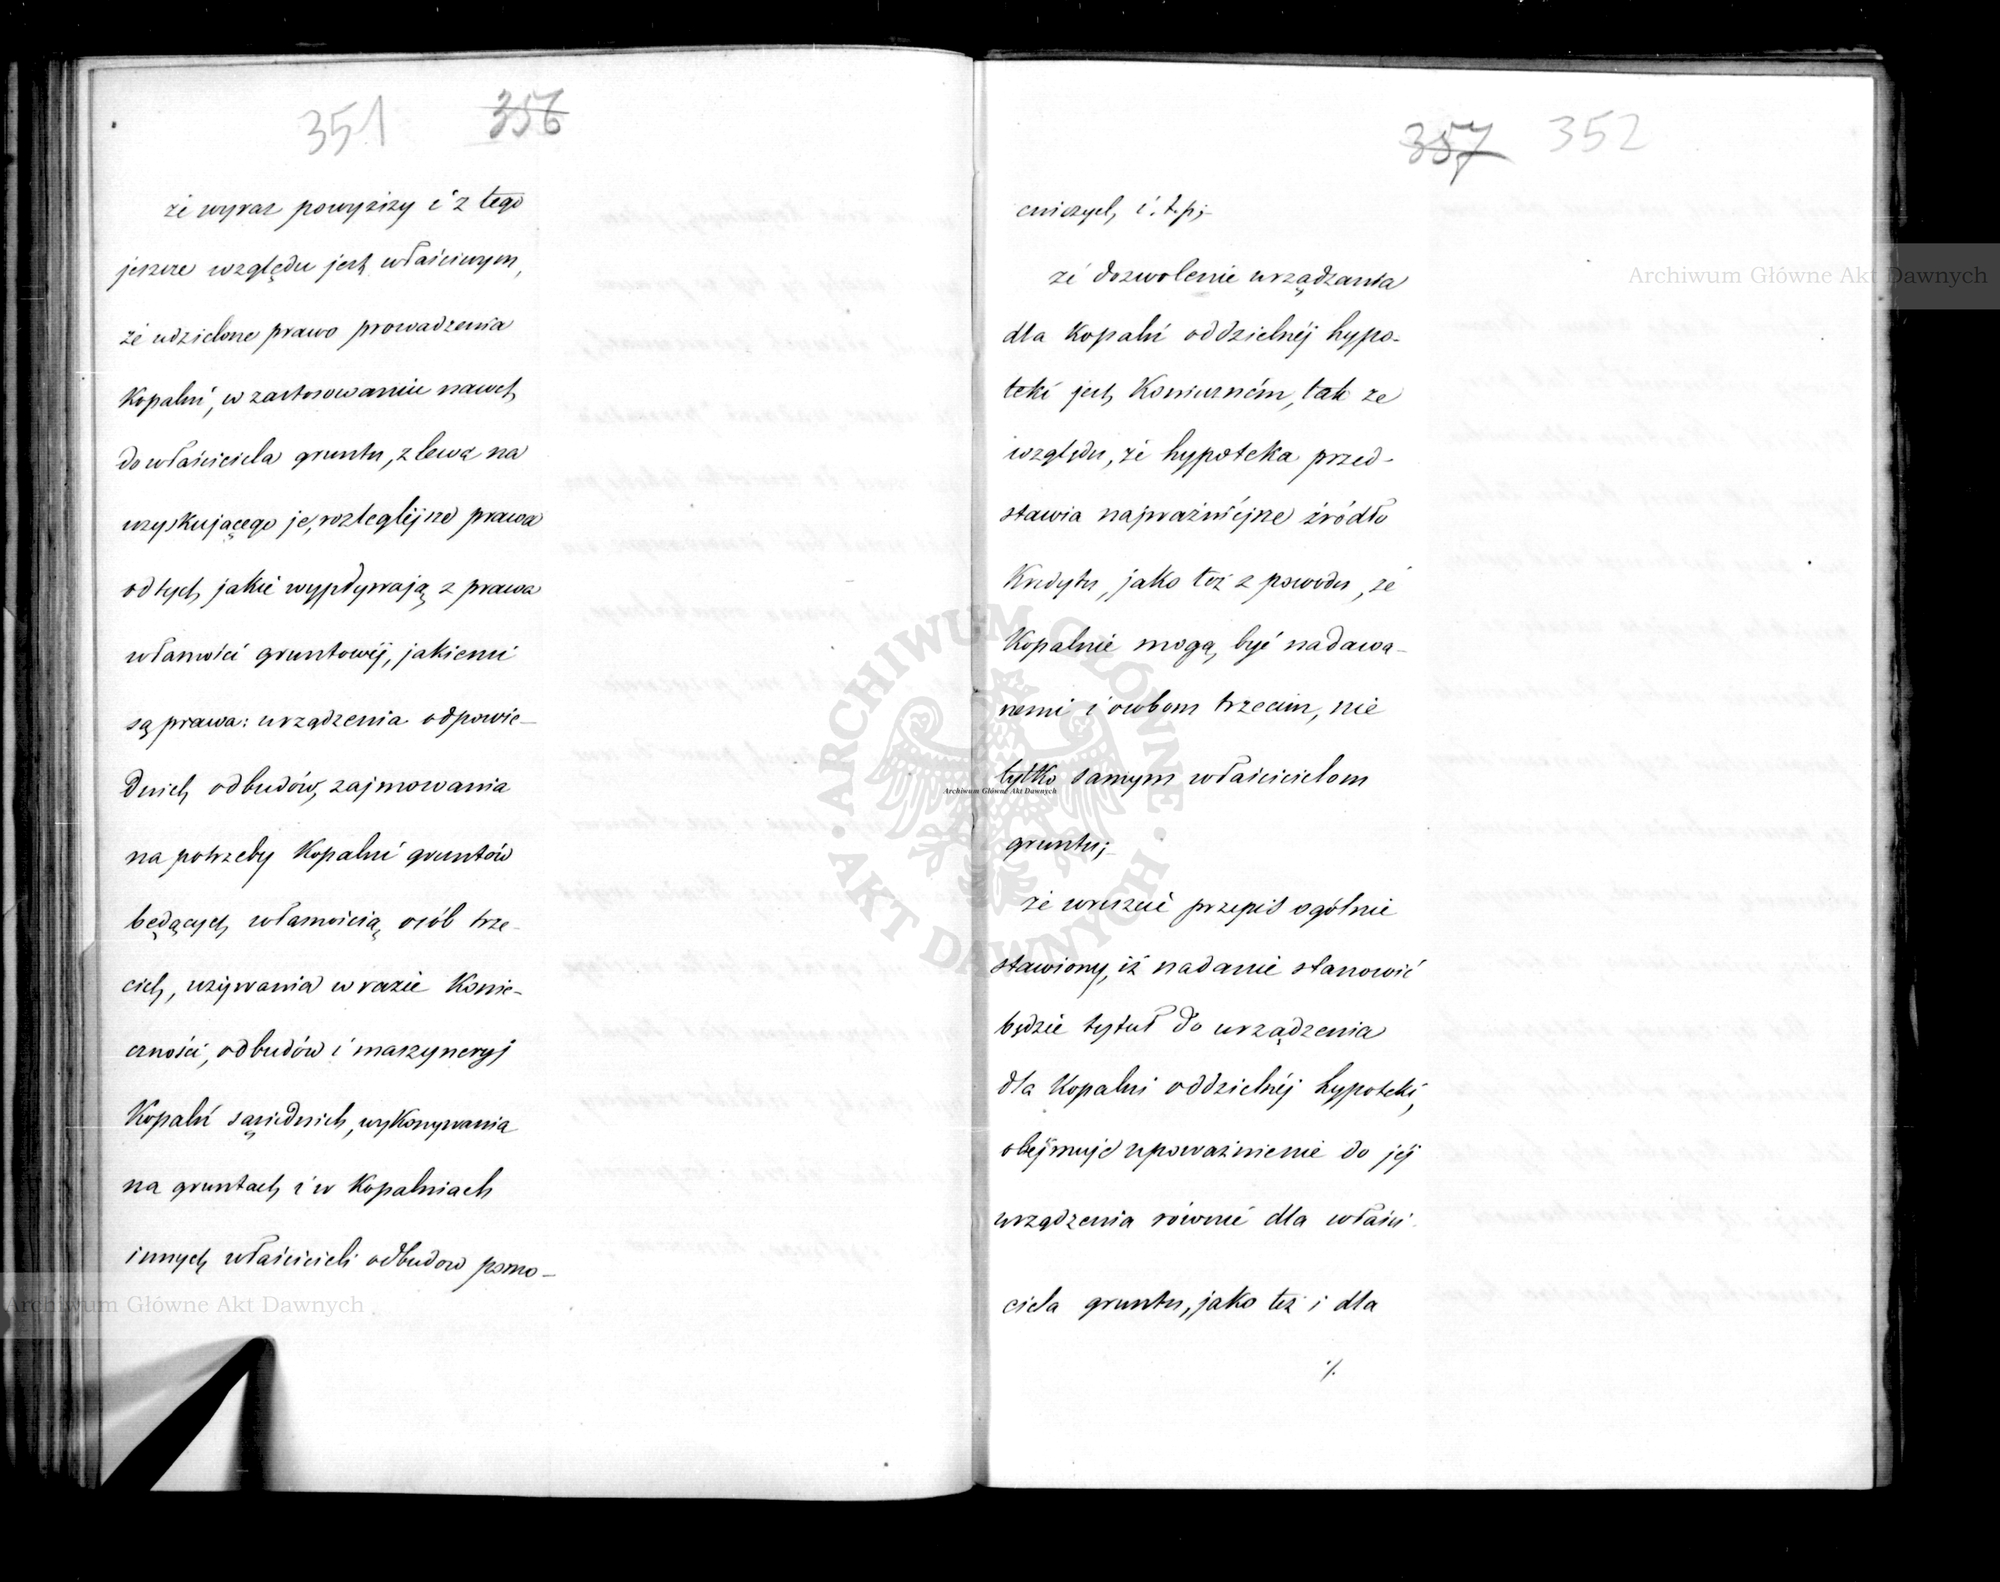 351 356
że wyraz powyższy i z tego
jeszcze względu jest właściwym,
że udzielone prawo prowadzenia
Kopalni, w zastosowaniu nawet
do właściciela gruntu, zlewa na
uzyskującego je, rozleglejsze prawa
od tych jakie wypływają z prawa
własności gruntowéj, jakiemi
są prawa: urządzenia odpowie-
dnich odbudów, zajmowania
na potrzeby Kopalni gruntów
będących własnością osób trze-
cich, używania w razie Konie-
czności, odbudów i maszyneryj
Kopalń sąsiednich, wykonywania
na gruntach i w Kopalniach
innych właścicieli odbudow pomo-
357 352
cniczych, i. t. p;-
że dozwolenie urządzania
dla Kopalń oddzielnéj hypo-
teki jest Konieczném, tak ze
względu, że hypoteka przed-
stawia najważniéjsze źródło
Kredytu, jako też z powodu, że
Kopalnie mogą być nadawa-
nemi i osobom trzecim, nie
tylko samym właścicielom
gruntu;-
że wreszcie przepis ogólnie
stawiony, iż nadanie stanowić
będzie tytuł do urządzenia
dla Kopalni oddzielnéj hypoteki,
obejmuje upoważnienie do jéj
urządzenia równie dla właści-
ciela gruntu, jako też i dla
·/.
Archiwum Główne Akt Dawnych
Archiwum Główne Akt Dawnych
Archiwum Główne Akt Dawnych
ARCHIWUM GŁÓWNE · AKT DAWNYCH ·